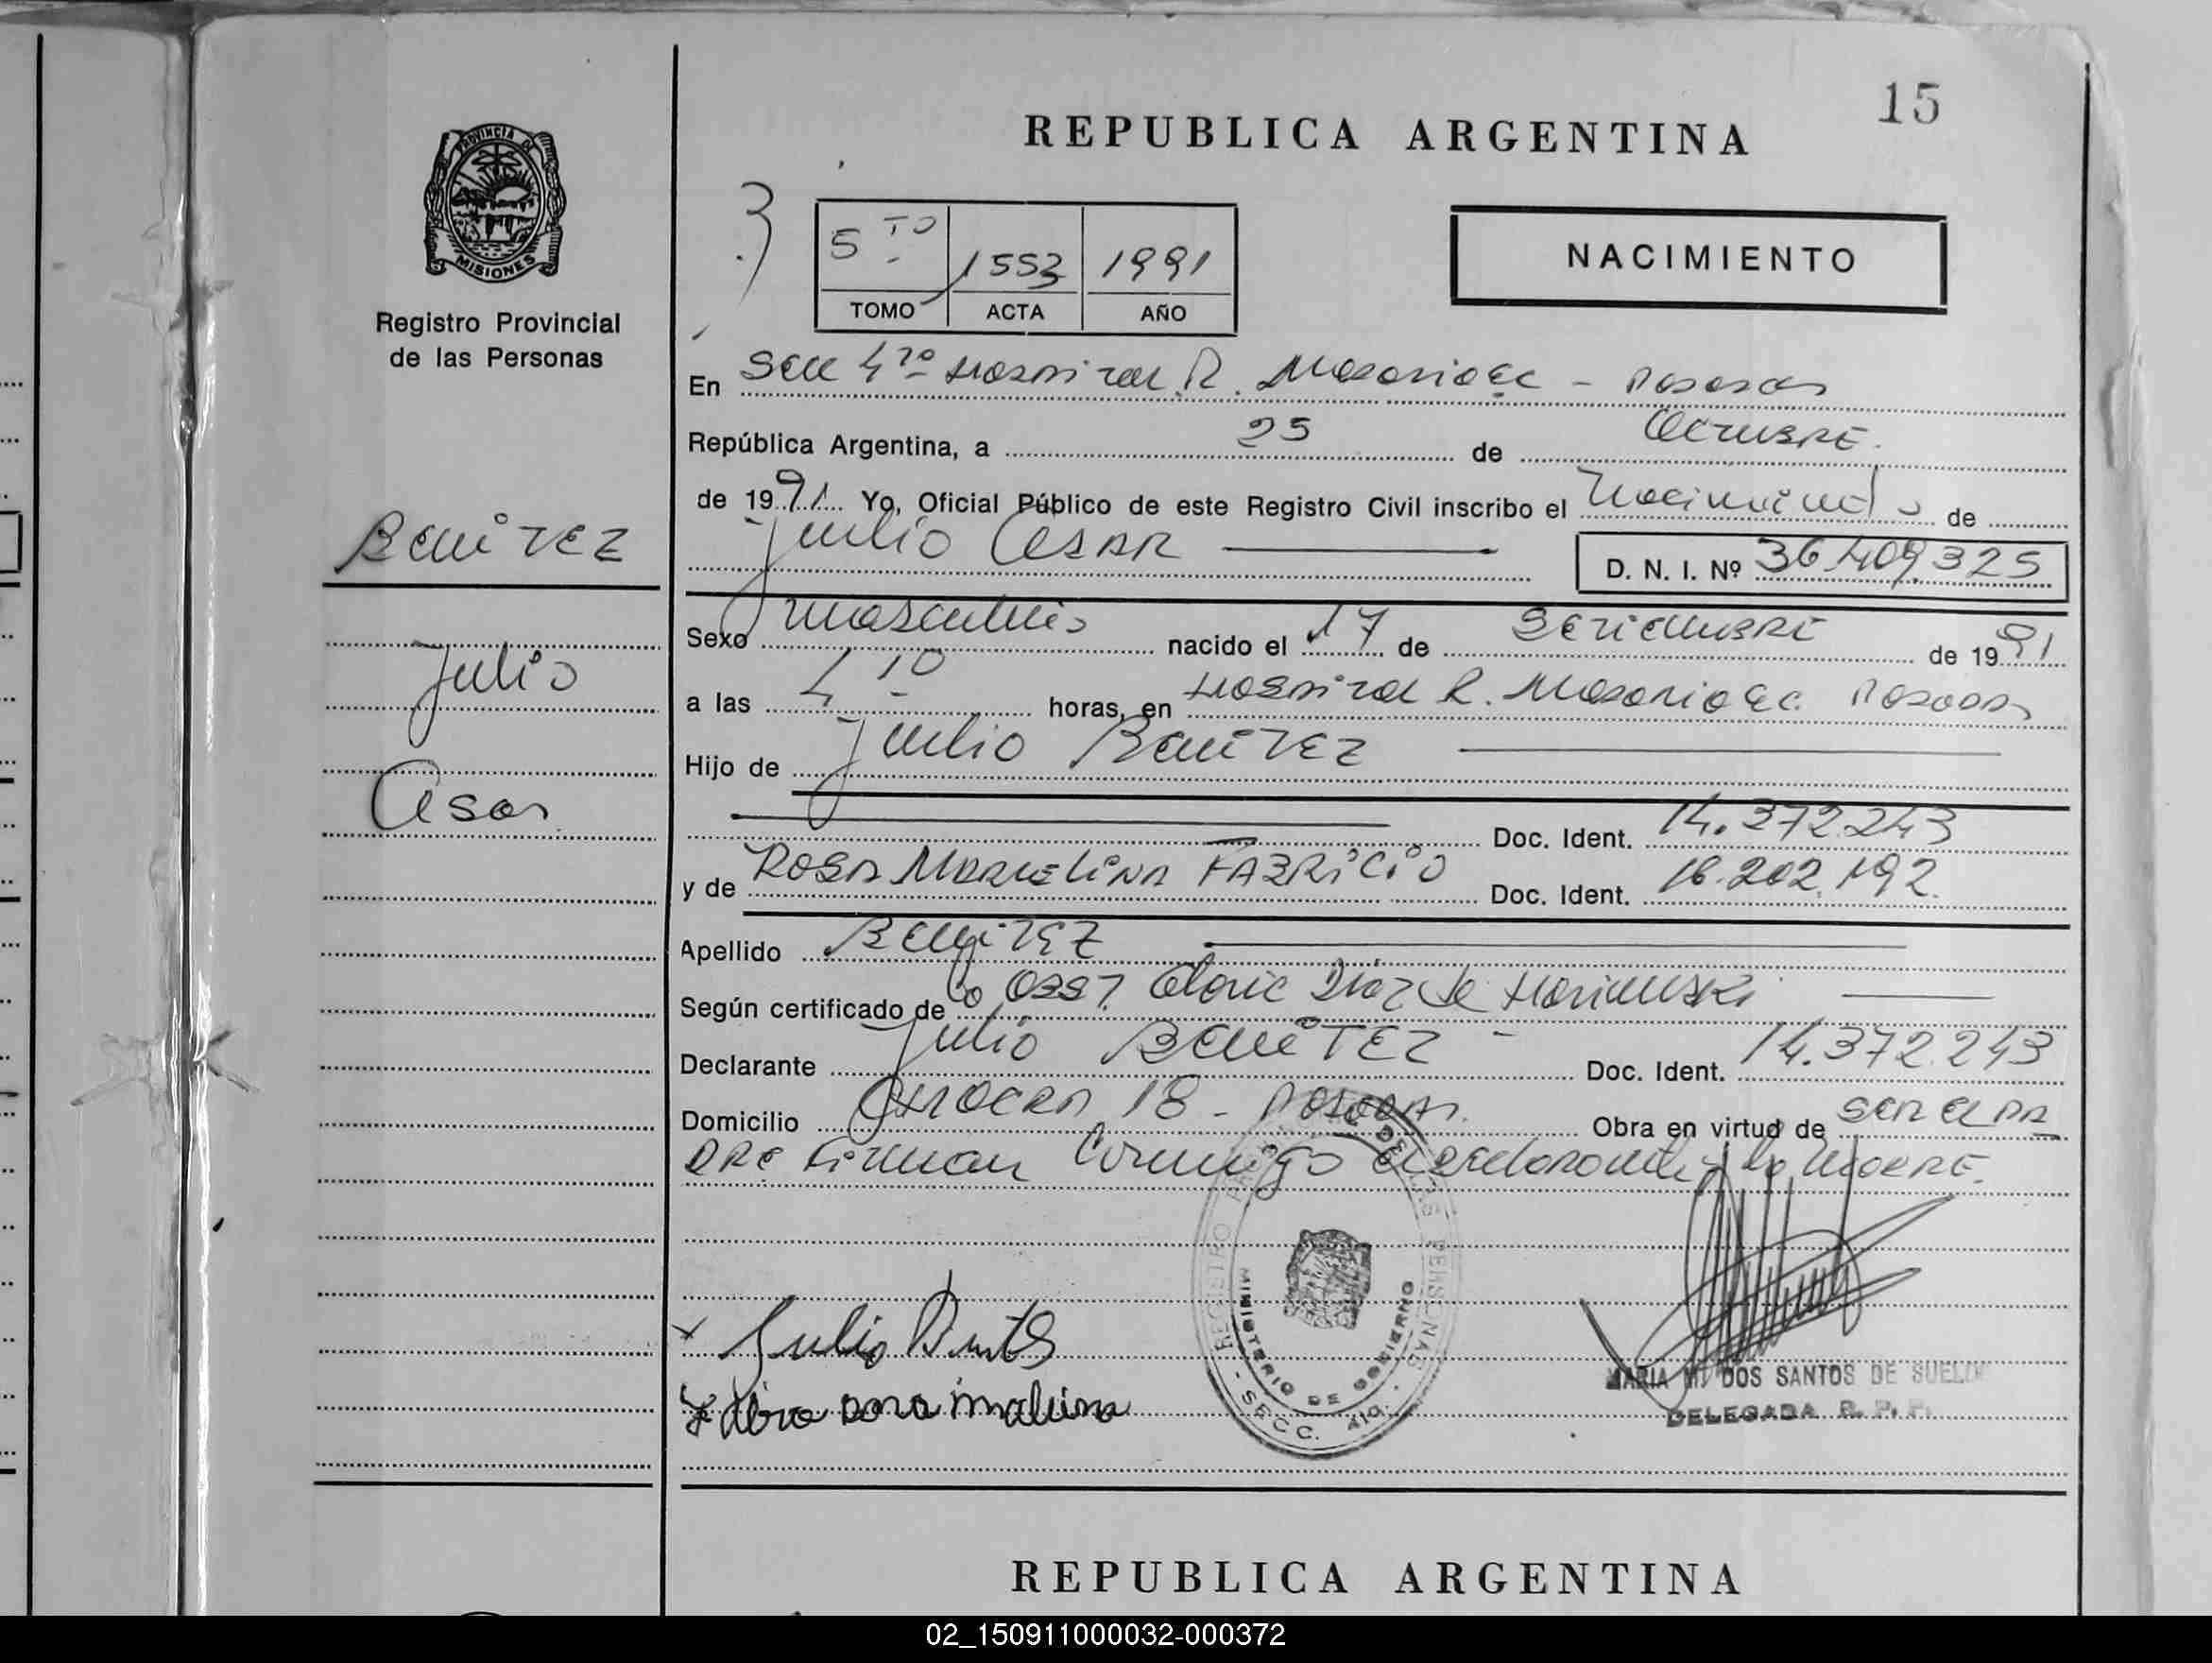 15
REPUBLICA ARGENTINA
PROVINCIA DE
MISIONES
Registro Provincial
de las Personas
5 TO 1553 1991
TOMO ACTA AÑO
NACIMIENTO
En Secc 4ta Hospital R. Madariaga - Posadas
República Argentina, a 25 de Octubre
de 1991 Yo, Oficial Público de este Registro Civil inscribo el Nacimiento de
Julio Cesar
D. N. I. Nº 36.409.325
BENITEZ
Julio
Cesar
Sexo masculino nacido el 17 de SETIEMBRE de 1991
a las 4 10 horas, en Hospital R. Madariaga Posadas
Hijo de Julio BENITEZ
Doc. Ident. 14.372.243
y de ROSA MARCELINA FABRICIO Doc. Ident. 16.202.192
Apellido BENITEZ
Según certificado de la OBST. Diaz de
Declarante Julio BENITEZ Doc. Ident. 14.372.243
Domicilio CHACRA 18 - POSADAS Obra en virtud de SER EL PA
DRE Firman Conmigo el declarante y la MADRE.
REGISTRO PROVINCIAL DE LAS PERSONAS
MINISTERIO DE GOBIERNO
- SECC. 4ta. -
x Julio
MARIA M. DOS SANTOS DE
DELEGADA R. P. P.
REPUBLICA ARGENTINA
02_150911000032-000372